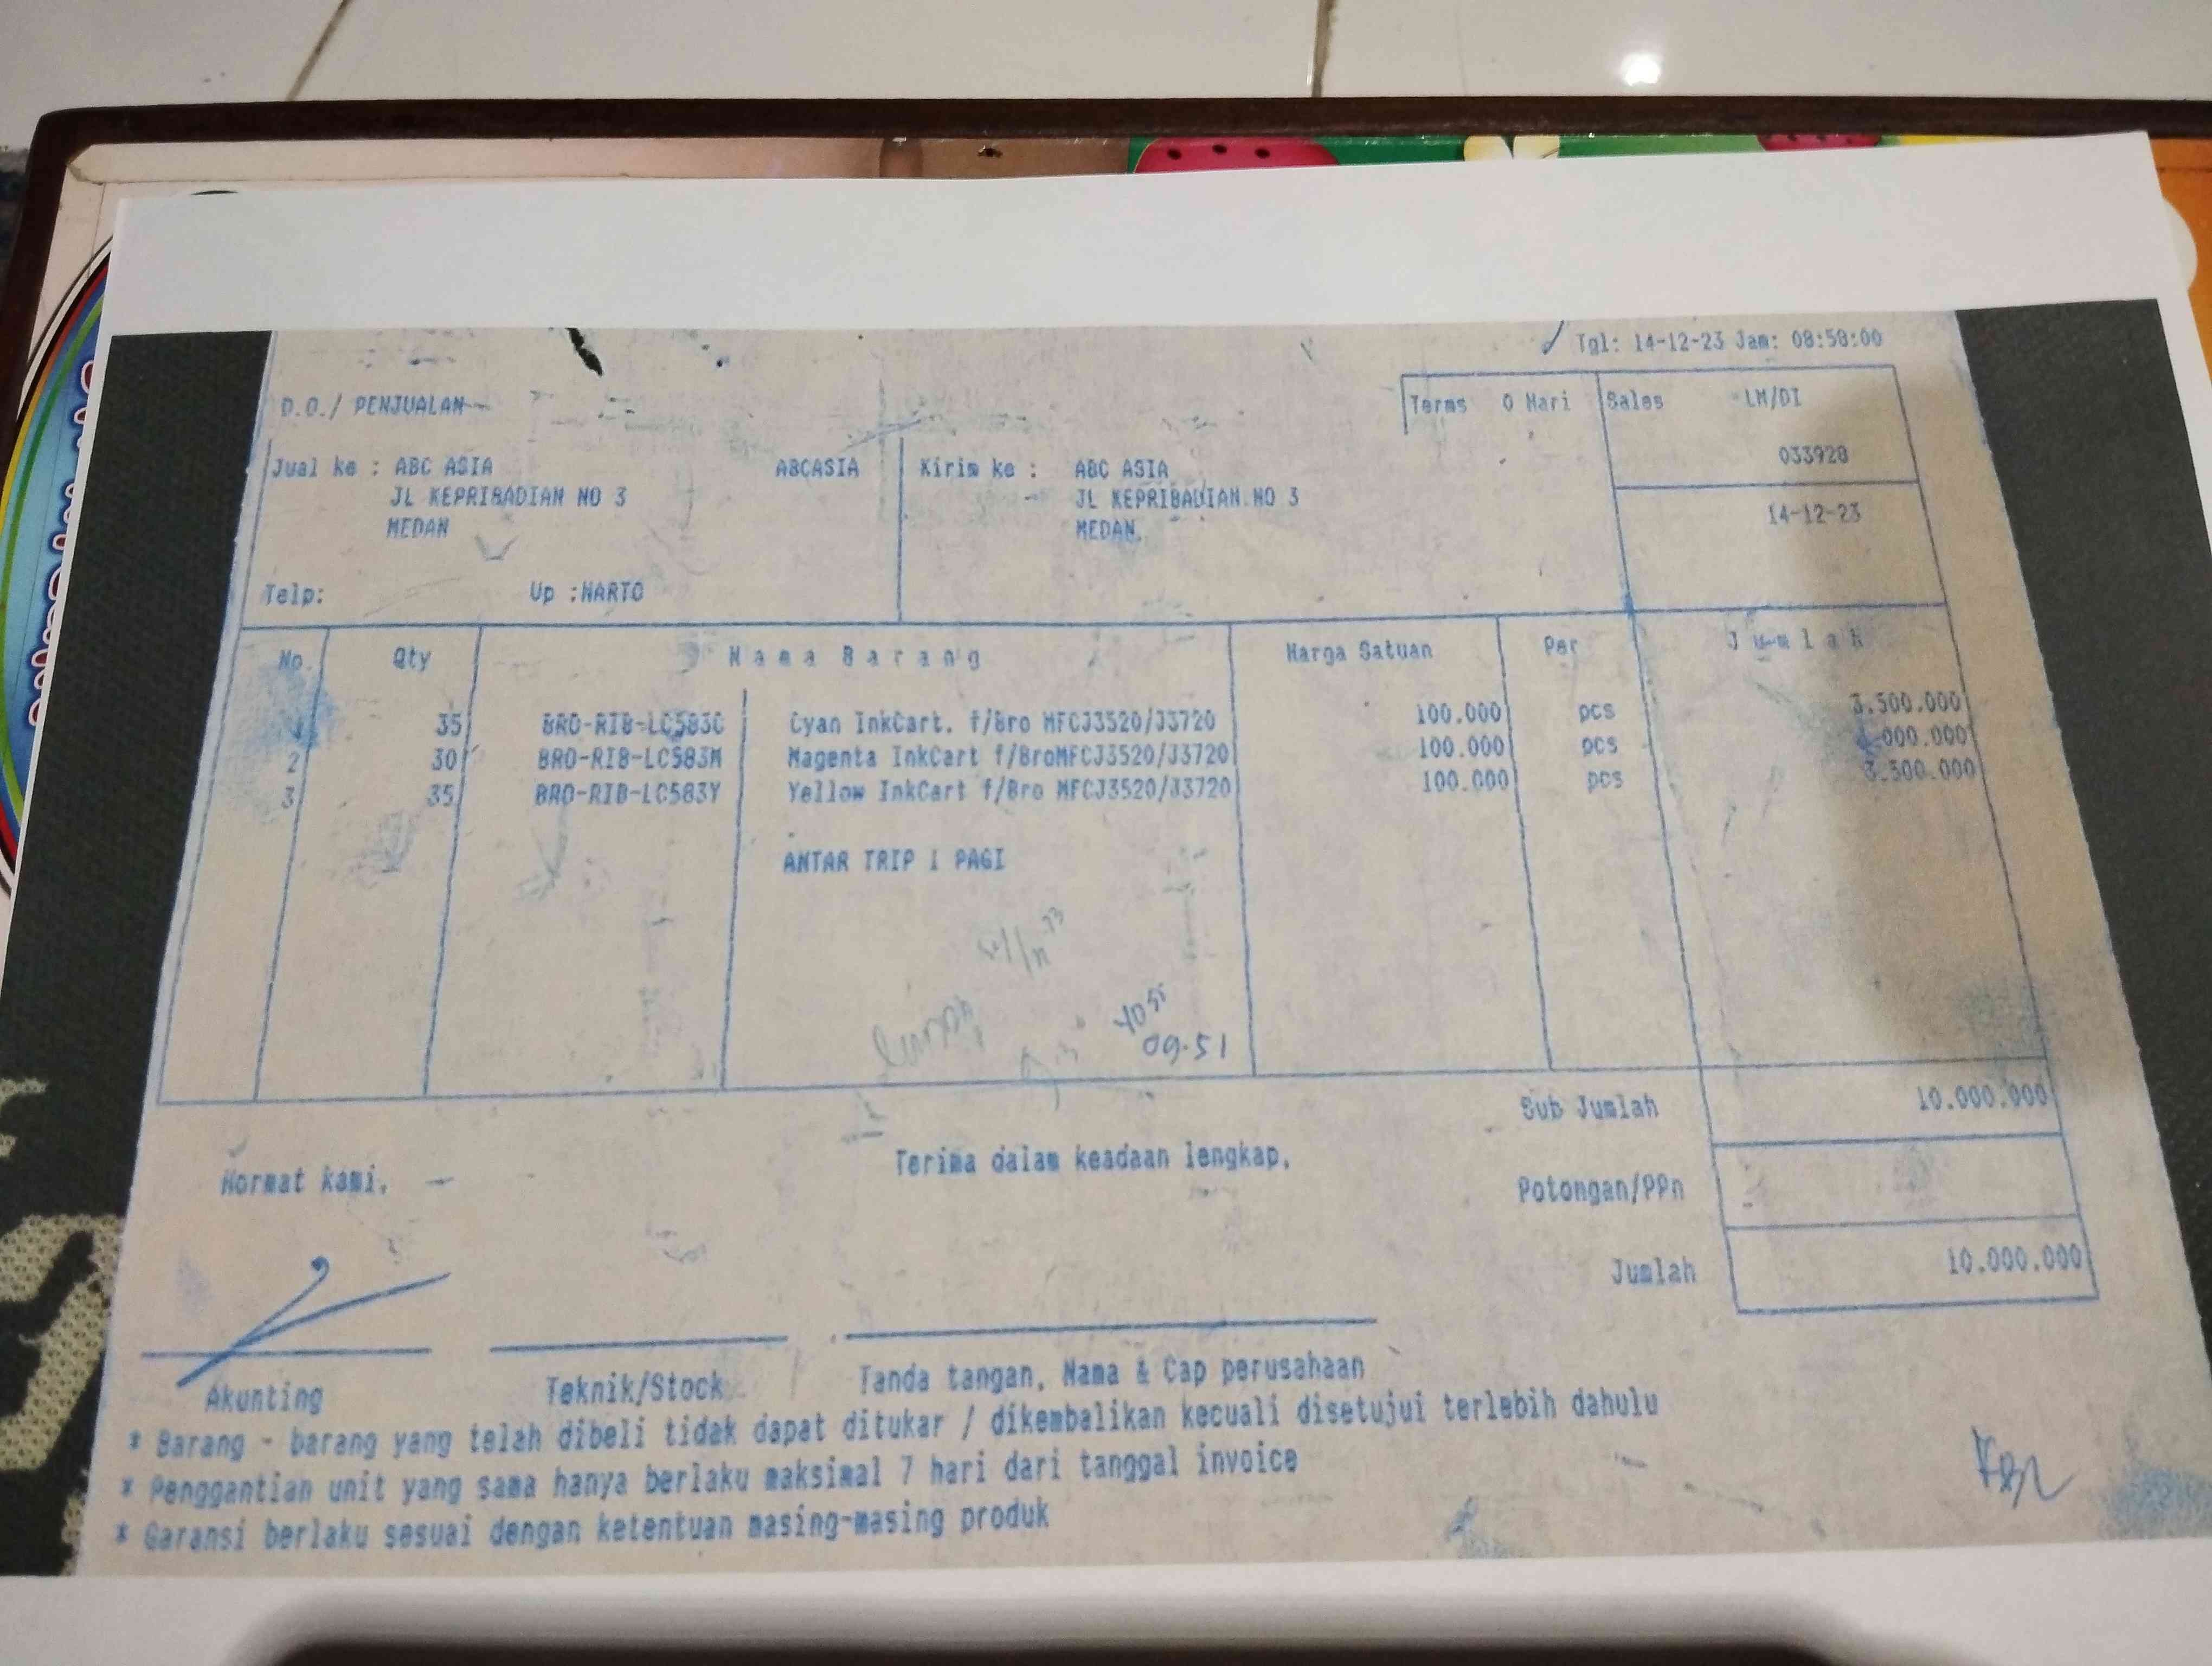 Tgl: 14-12-23 Jam: 08:58:00
D.O./ PENJUALAN
Terms 0 Hari Sales LM/DI
033928
14-12-23
Jual ke : ABC ASIA ABCASIA
JL KEPRIBADIAN NO 3
MEDAN
Telp: Up :HARTO
Kirim ke : ABC ASIA
JL KEPRIBADIAN NO 3
MEDAN
No. Qty Nama Barang Harga Satuan Per Jumlah
1 35 BRO-RIB-LC583C Cyan InkCart. f/Bro MFCJ3520/J3720 100.000 pcs 3.500.000
2 30 BRO-RIB-LC583M Magenta InkCart f/BroMFCJ3520/J3720 100.000 pcs 000.000
3 35 BRO-RIB-LC583Y Yellow InkCart f/Bro MFCJ3520/J3720 100.000 pcs 3.500.000
ANTAR TRIP 1 PAGI
09.51
Sub Jumlah 10.000.000
Potongan/PPn
Jumlah 10.000.000
Hormat kami,
Terima dalam keadaan lengkap,
Akunting Teknik/Stock Tanda tangan, Nama & Cap perusahaan
* Barang - barang yang telah dibeli tidak dapat ditukar / dikembalikan kecuali disetujui terlebih dahulu
* Penggantian unit yang sama hanya berlaku maksimal 7 hari dari tanggal invoice
* Garansi berlaku sesuai dengan ketentuan masing-masing produk